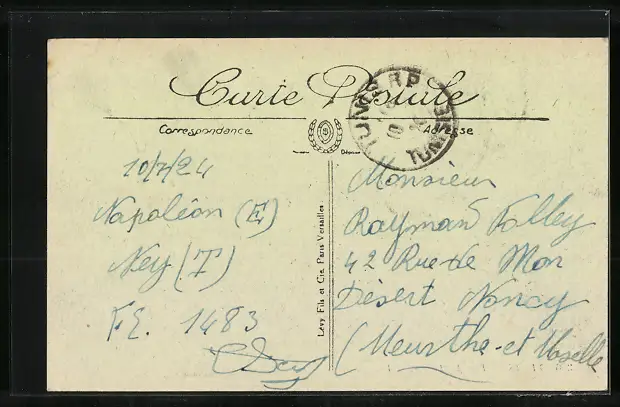 Carte Postale
Correspondance
Adresse
TUNIS RP
TUNISIE
10/7/24
Napoléon (E)
Ney (T)
F.E. 1483
Monsieur
Raymond Volley
42 Rue de Mon
Désert Nancy
(Meurthe-et Moselle
Lévy Fils et Cie, Paris Versailles